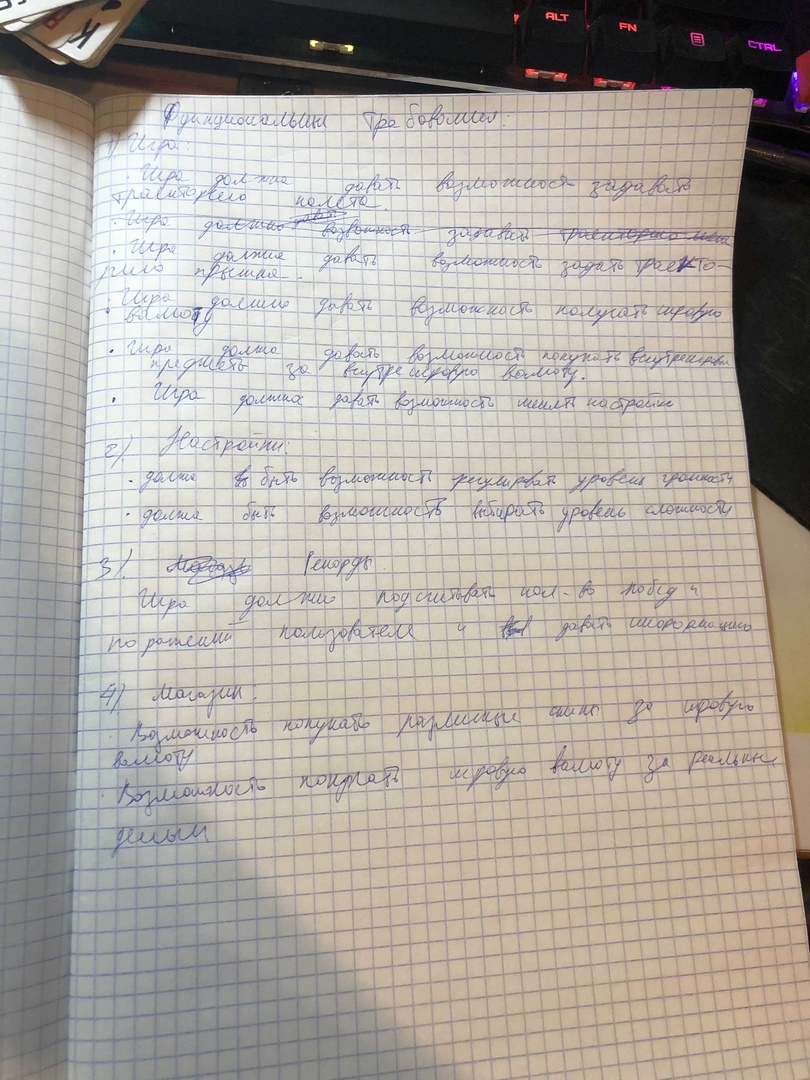 ALT
FN
CTRL
K
Функциональные требования:
1) Игра:
· Игра должна давать возможность задавать
траекторию полета.
· Игра должна давать возможность задавать траекторию
· Игра должна давать возможность задать траекто-
рию прыжка.
· Игра должна давать возможность получать игровую
валюту
· Игра должна давать возможность покупать внутриигровые
предметы за внутреигровую валюту.
· Игра должна давать возможность менять настройки
2) Настройки:
· должна быть возможность регулировать уровень громкости
· должна быть возможность выбирать уровень сложности
3). Рекорды.
Игра должна подсчитывать кол-во побед и
поражений пользователя и давать информацию
4) Магазин:
· Возможность покупать различные скины за игровую
валюту
· Возможность покупать игровую валюту за реальные
деньги